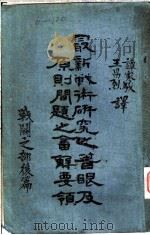 譚家駿
王昌烈 譯
最新戰術研究之着眼及
原則問題之答解要領
戰鬥之部後篇